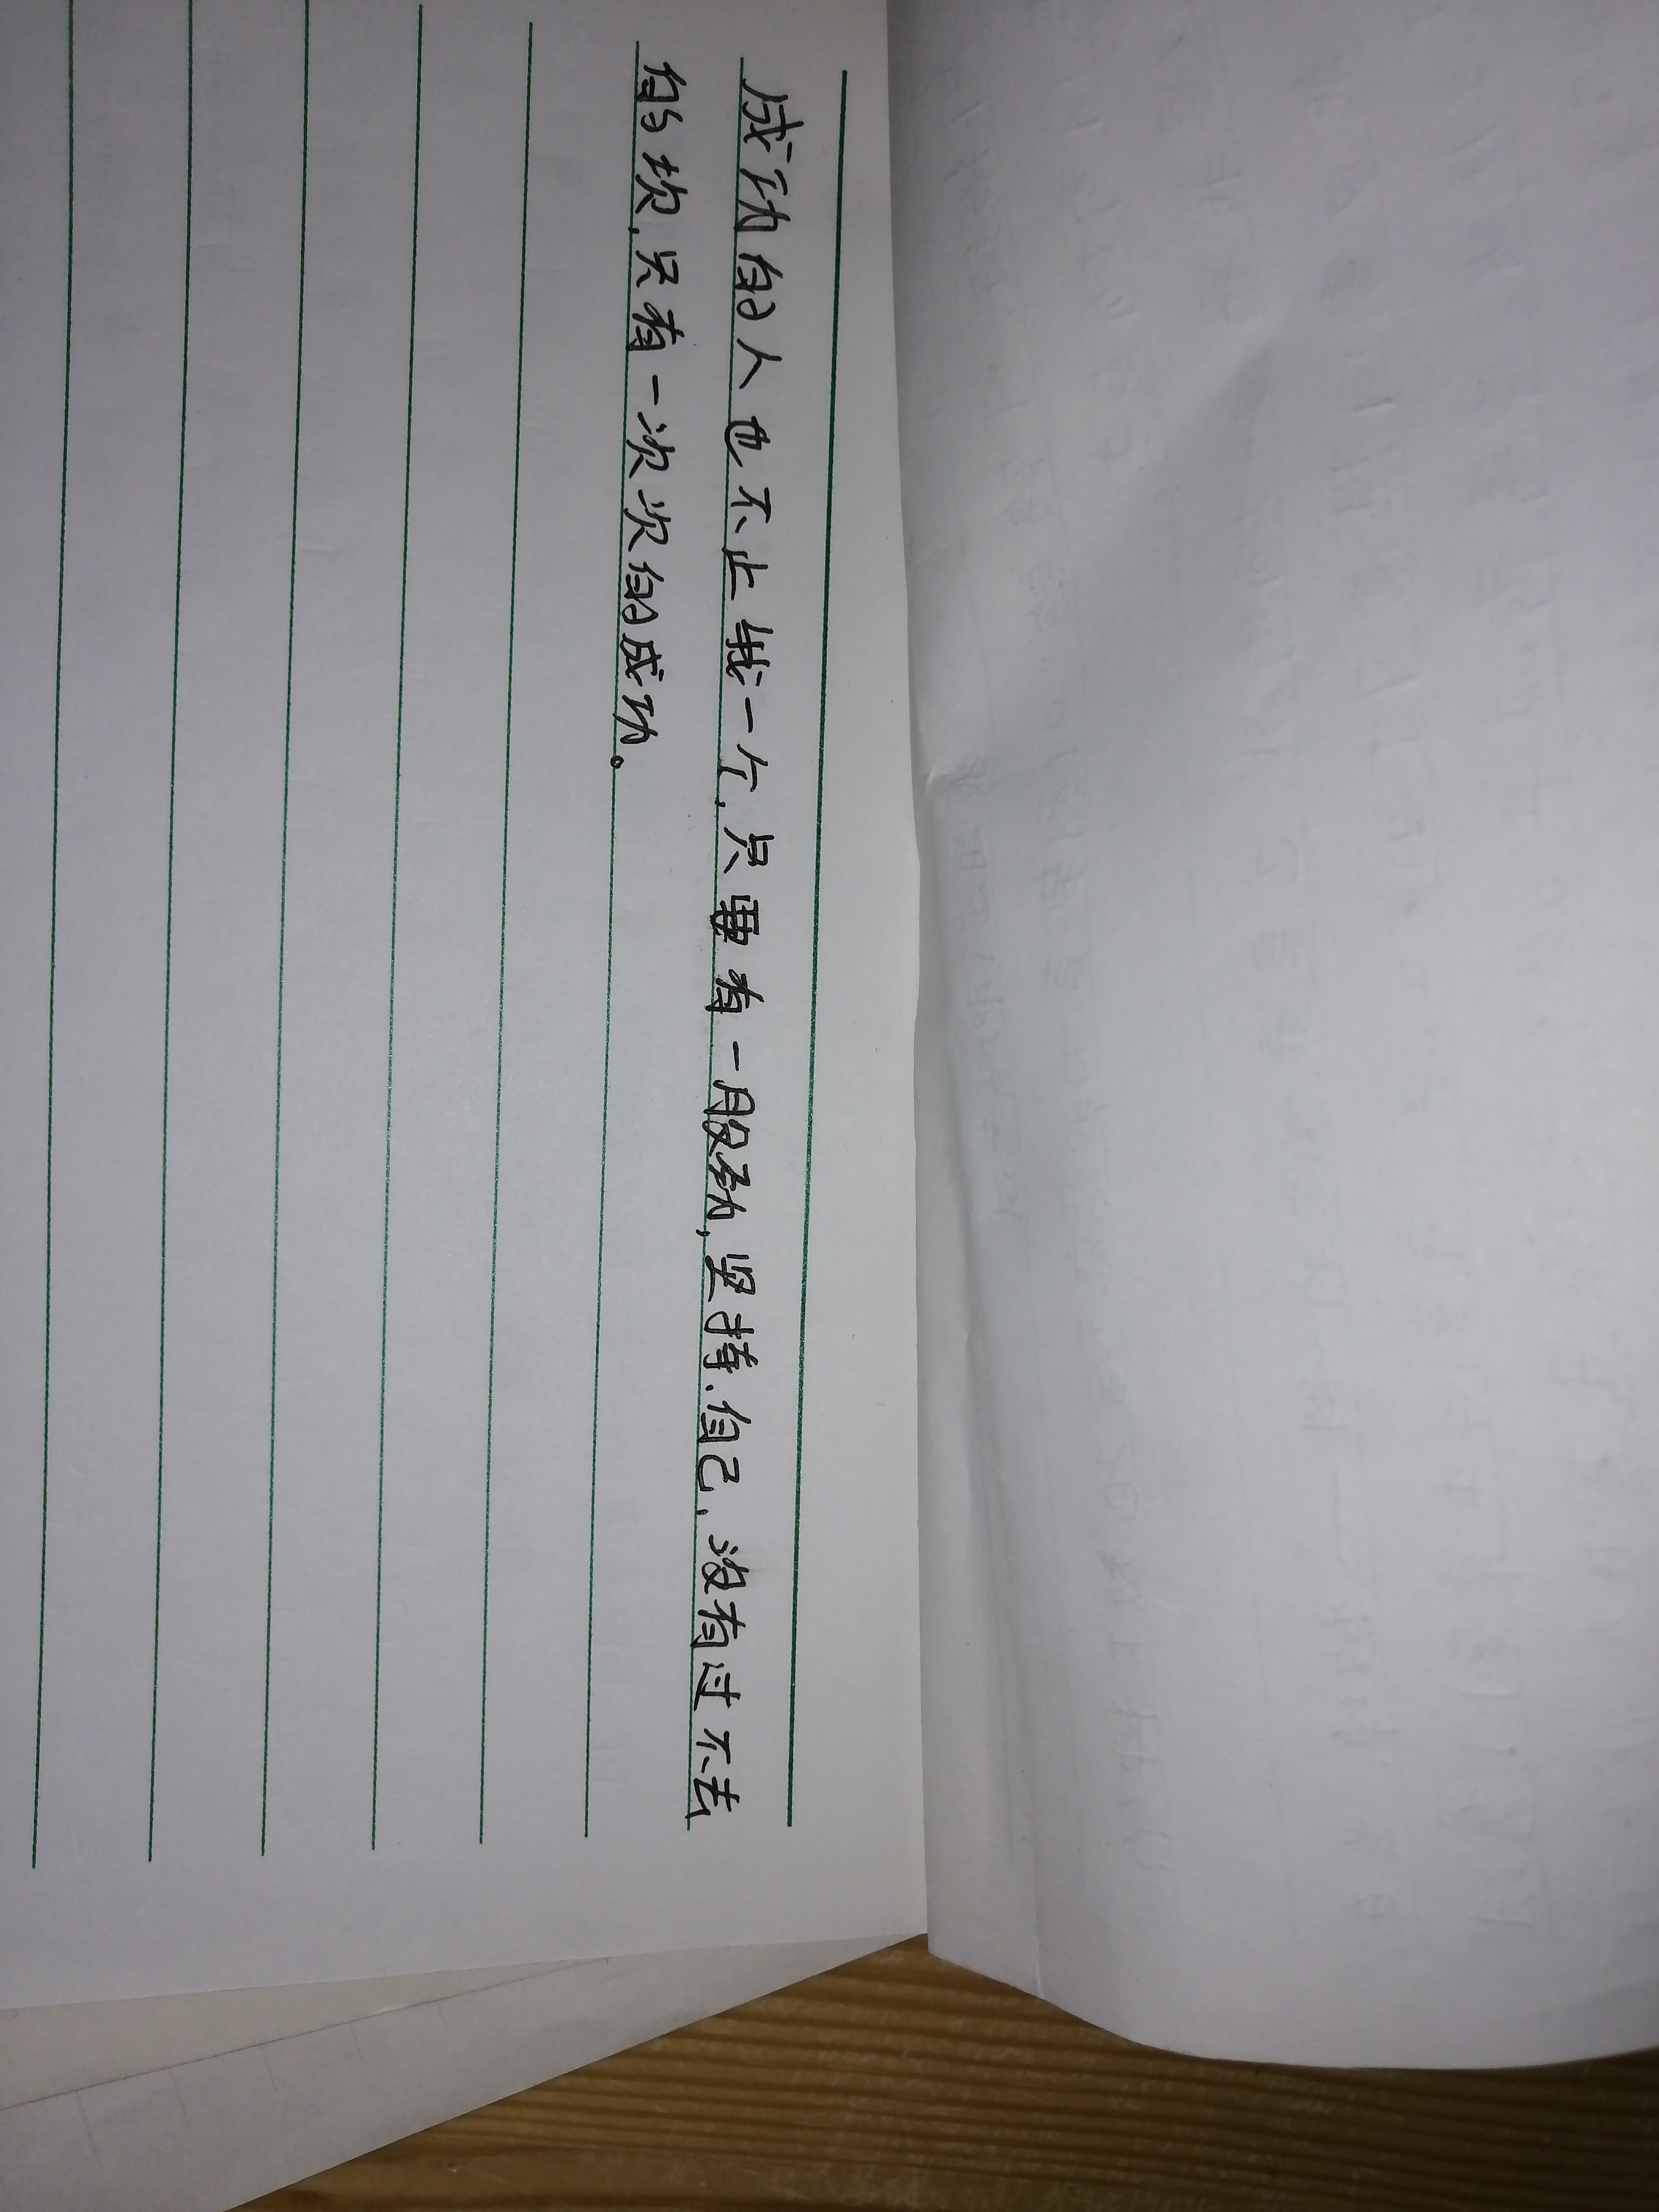 成功的人也不止我一个,只要有一股劲,坚持.自己,没有过不去
的坎,只有一次次的成功。